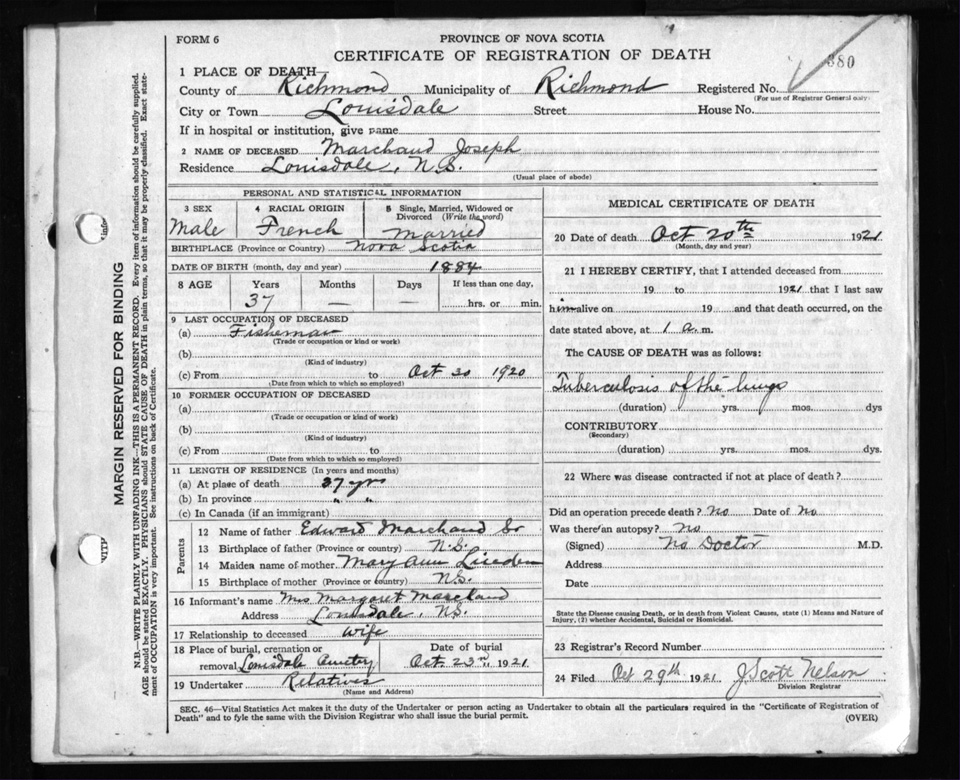 FORM 6
PROVINCE OF NOVA SCOTIA
CERTIFICATE OF REGISTRATION OF DEATH
380
1 PLACE OF DEATH—
County of Richmond Municipality of Richmond Registered No.
(For use of Registrar General only)
City or Town Louisdale Street House No.
If in hospital or institution, give name
2 NAME OF DECEASED Marchand Joseph
Residence Louisdale, N.S.
(Usual place of abode)
PERSONAL AND STATISTICAL INFORMATION
3 SEX 4 RACIAL ORIGIN 5 Single, Married, Widowed or Divorced (Write the word)
Male French Married
BIRTHPLACE (Province or Country) Nova Scotia
DATE OF BIRTH (month, day and year) 1884
8 AGE Years Months Days If less than one day,
37 — — hrs. or min.
9 LAST OCCUPATION OF DECEASED
(a) Fisheman
(Trade or occupation or kind or work)
(b)
(Kind of industry)
(c) From to Oct 30 1920
(Date from which to which so employed)
10 FORMER OCCUPATION OF DECEASED
(a)
(Trade or occupation or kind of work)
(b)
(Kind of industry)
(c) From to
(Date from which to which so employed)
11 LENGTH OF RESIDENCE (In years and months)
(a) At place of death 37 yrs
(b) In province " "
(c) In Canada (if an immigrant)
Parents
12 Name of father Edward Marchand Sr
13 Birthplace of father (Province or country) N.S.
14 Maiden name of mother Mary Ann
15 Birthplace of mother (Province or country) NS.
16 Informant's name Mrs Margaret Marchand
Address Louisdale, NS.
17 Relationship to deceased Wife
18 Place of burial, cremation or Date of burial
removal Louisdale Cemetry Oct 23rd, 1921
19 Undertaker Relatives
(Name and Address)
MEDICAL CERTIFICATE OF DEATH
20 Date of death Oct 20th 1921
(Month, day and year)
21 I HEREBY CERTIFY, that I attended deceased from
19 to 1921 that I last saw
him alive on 19 and that death occurred, on the
date stated above, at 1 a. m.
The CAUSE OF DEATH was as follows:
Tuberculosis of the lungs
(duration) yrs. mos. dys
CONTRIBUTORY
(Secondary)
(duration) yrs. mos. dys.
22 Where was disease contracted if not at place of death?
Did an operation precede death? No Date of No
Was there an autopsy? No
(Signed) No Doctor M.D.
Address
Date
State the Disease causing Death, or in death from Violent Causes, state (1) Means and Nature of
Injury, (2) whether Accidental, Suicidal or Homicidal.
23 Registrar's Record Number
24 Filed Oct 29th 1921 J Scott Nelson
Division Registrar
SEC. 46—Vital Statistics Act makes it the duty of the Undertaker or person acting as Undertaker to obtain all the particulars required in the "Certificate of Registration of
Death" and to fyle the same with the Division Registrar who shall issue the burial permit.
(OVER)
MARGIN RESERVED FOR BINDING
N.B.—WRITE PLAINLY WITH UNFADING INK—THIS IS A PERMANENT RECORD. Every item of information should be carefully supplied.
AGE should be stated EXACTLY. PHYSICIANS should STATE CAUSE OF DEATH in plain terms, so that it may be properly classified. Exact state-
ment of OCCUPATION is very important. See instructions on back of Certificate.